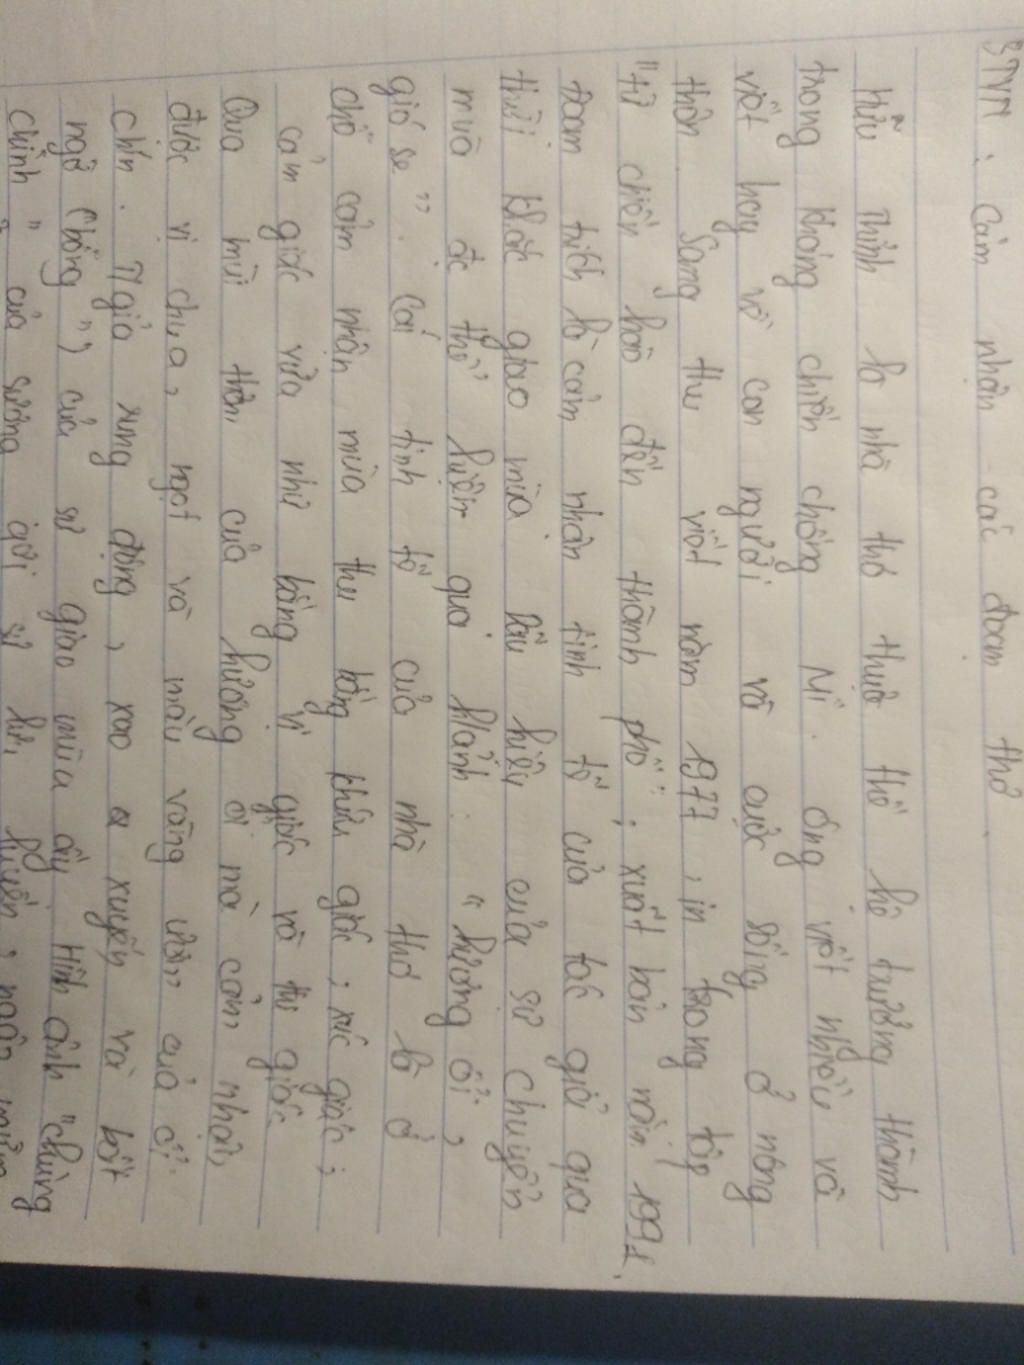 STVN : Cảm nhận các đoạn thơ.
Hữu Thỉnh là nhà thơ thuộc thế hệ trưởng thành
trong kháng chiến chống Mĩ. ông viết nhiều và
viết hay về con người và cuộc sống ở nông
thôn. Sang thu viết năm 1977, in trong tập
"từ chiến hào đến thành phố"; xuất bản năm 1991.
Đoạn trích là cảm nhận tinh tế của tác giả qua
thời khắc giao mùa. Dấu hiệu của sự chuyển
mùa đc thể hiện qua h/ảnh: "hương ổi,
gió se". Cái tinh tế của nhà thơ là ở
chỗ cảm nhận mùa thu bằng khứu giác; xúc giác;
cảm giác vừa như bằng vị giác và thị giác.
Qua mùi thơm của hương ổi mà cảm nhận
được vị chua, ngọt và màu vàng ươm của ổi
chín. T/giả xúng động, xao xuyến và bất
ngờ (bỗng") của sự giao mùa ấy. Hình ảnh "chùng
chình" của sương gợi sự lưu luyến, ngập ngừng